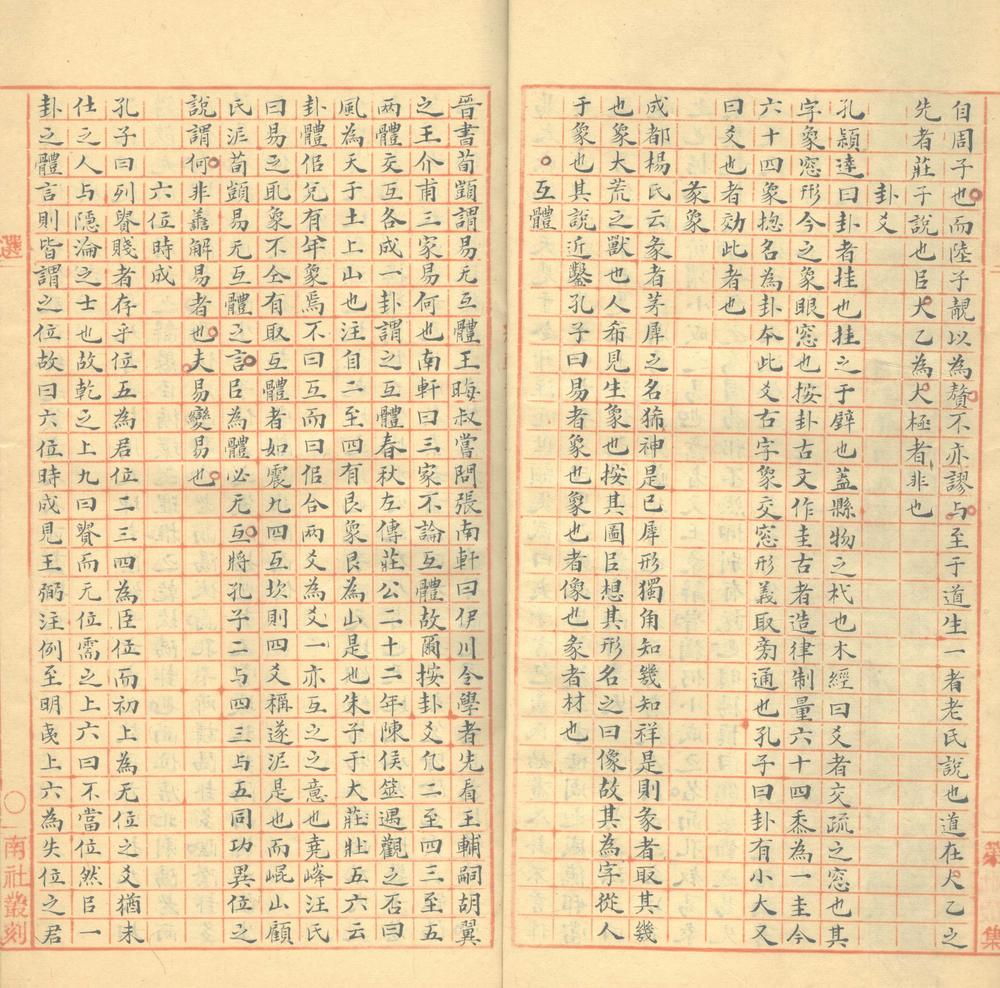 自周子也而陸子靚以為贅不亦謬与至于道生一者老氏說也道在太乙之
先者莊子說也臣太乙為太極者非也
卦爻
孔頴達曰卦者挂也挂之于壁也蓋縣物之杙也木經曰爻者交疏之窓也其
字象窓形今之象眼窓也按卦古文作圭古者造律制量六十四黍為一圭今
六十四象揔名為卦夲此爻古字象交窓形義取旁通也孔子曰卦有小大又
曰爻也者効此者也
彖象
成都楊氏云彖者茅犀之名狶神是已犀形獨角知幾知祥是則彖者取其幾
也象大荒之獸也人希見生象也按其圖㠯想其形名之曰像故其為字從人
于象也其說近鑿孔子曰易者象也象也者像也彖者材也
互體
晉書荀顗謂易无互體王晦叔嘗問張南軒曰伊川令學者先看王輔嗣胡翼
之王介甫三家易何也南軒曰三家不論互體故爾按卦爻凢二至四三至五
两體交互各成一卦謂之互體春秋左傳莊公二十二年陳侯筮遇觀之否曰
風為天于土上山也注自二至四有艮象艮為山是也朱子于大莊壯五六云
卦體佀兌有羊象焉不曰互而曰佀合两爻為爻一亦互之之意也堯峰汪氏
曰易之取象不仝有取互體者如震九四互坎則四爻稱遂泥是也而崐山顧
氏泥荀顗易无互體之言㠯為體必无互將孔子二与四三与五同功異位之
說謂何非善解易者也夫易變易也
六位時成
孔子曰列貴賤者存乎位五為君位二三四為臣位而初上為无位之爻猶未
仕之人与隱淪之士也故乾之上九曰貴而无位需之上六曰不當位然㠯一
卦之體言則皆謂之位故曰六位時成見王弼注例至明夷上六為失位之君
選
南社叢刻
集